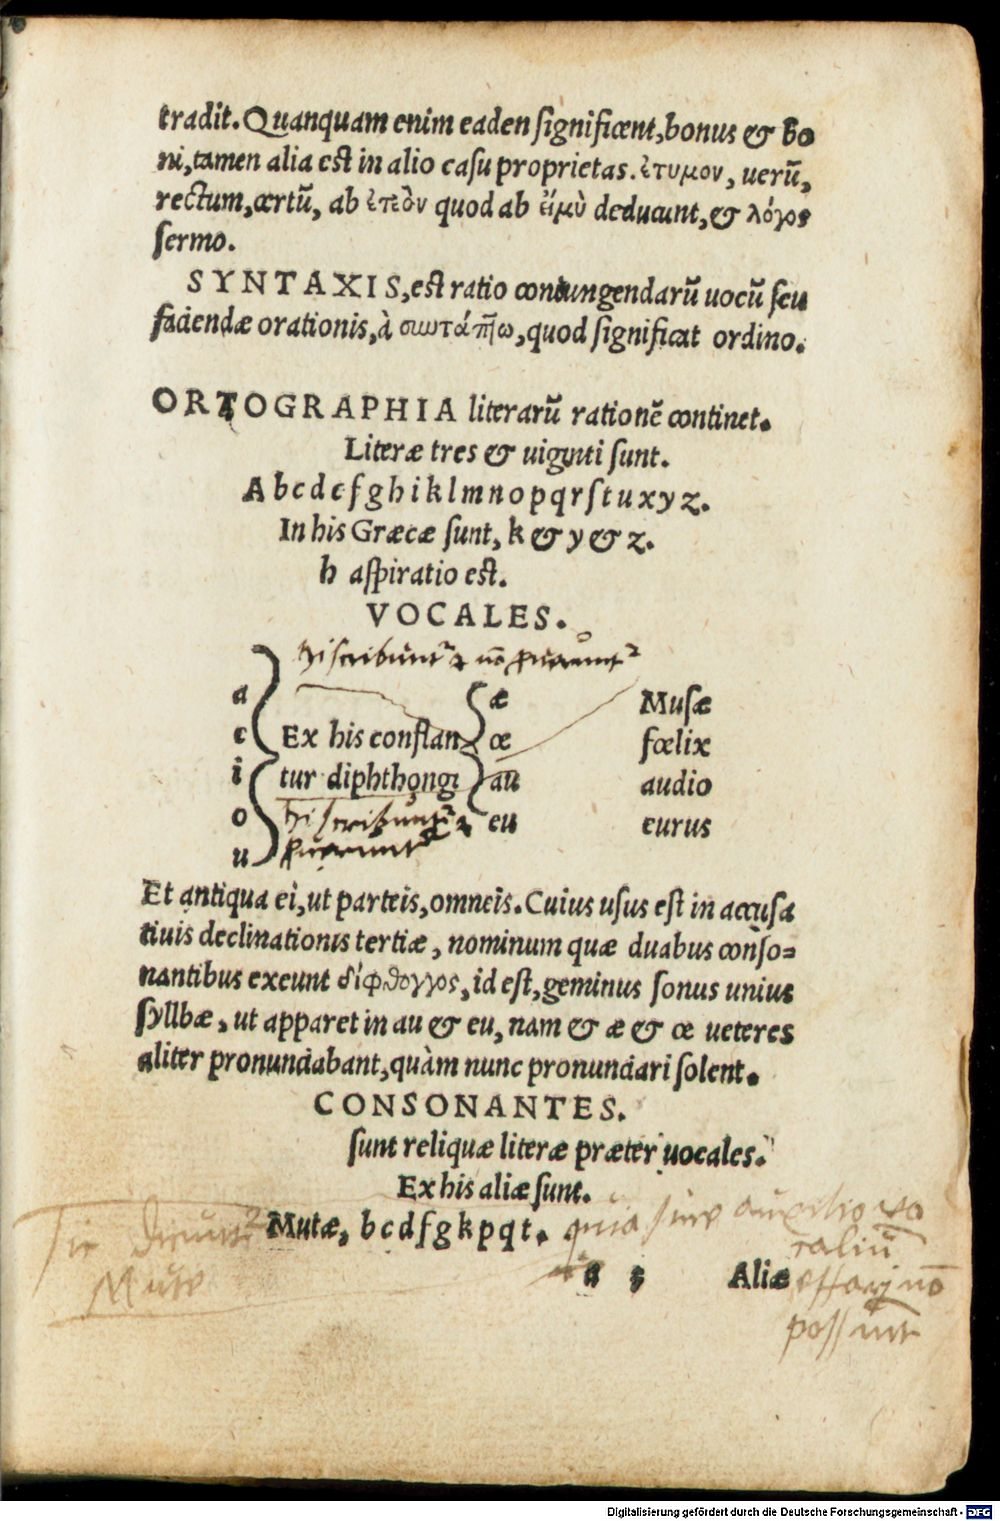 tradit. Quanquam enim eaden significent, bonus & Bo
ni, tamen alia est in alio casu proprietas. ἐτυμον, uerũ,
rectum, certũ, ab ἐτεὸν quod ab εἰμὺ deducunt, & λόγος
sermo.
SYNTAXIS, est ratio coniungendarũ uocũ seu
faciendæ orationis, à συντάττω, quod significat ordino.
ORTOGRAPHIA literarũ rationẽ continet.
Literæ tres & uiginti sunt.
A b c d e f g h i k l m n o p q r s t u x y z.
In his Græcæ sunt, k & y & z.
h aspiratio est.
VOCALES.
hi scribunt²
a æ Musæ
e Ex his constan œ fœlix
i tur diphthongi au audio
o hi scribunt² eu eurus
u
Et antiqua ei, ut parteis, omneis. Cuius usus est in accusa
tiuis declinationis tertiæ, nominum quæ duabus conso=
nantibus exeunt δίφθογγος, id est, geminus sonus unius
syllbæ, ut apparet in au & eu, nam & æ & œ ueteres
aliter pronunciabant, quàm nunc pronunciari solent.
CONSONANTES.
sunt reliquæ literæ præter uocales.
Ex his aliæ sunt.
Sic dicunt² Mutæ, b c d f g k p q t. quia sine auxilio vo
Mute caliũ
a 5 Aliæ effari nõ
possunt
Digitalisierung gefördert durch die Deutsche Forschungsgemeinschaft - DFG